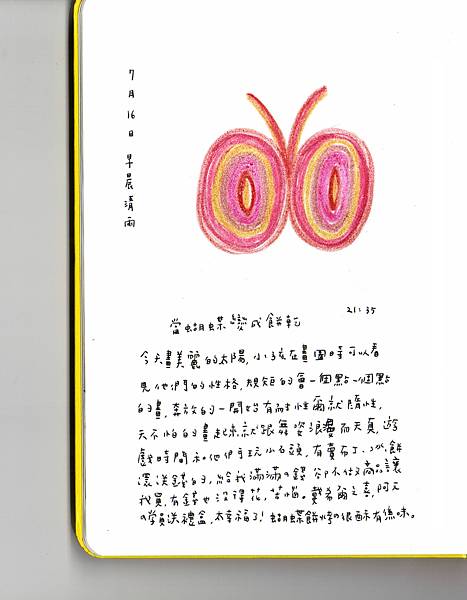 7月16日 早晨清雨
21:35
當蝴蝶變成餅乾
今天畫美麗的太陽,小孩在畫圖時可以看
見他們的性格,規矩的會一個點一個點
的畫,奔放的一開始有耐性爾就隨性,
天不怕的畫起來就跟舞姿浪漫而天真,遊
戲時間和他們玩小石頭,有賣布丁、冰、餅
還送錢的,給我滿滿的錢 卻不做商品讓
我買,有錢也沒得花,苦惱。戴 爾之喜,阿元
的學員送禮盒,太幸福了!蝴蝶餅烤的很酥有滋味。